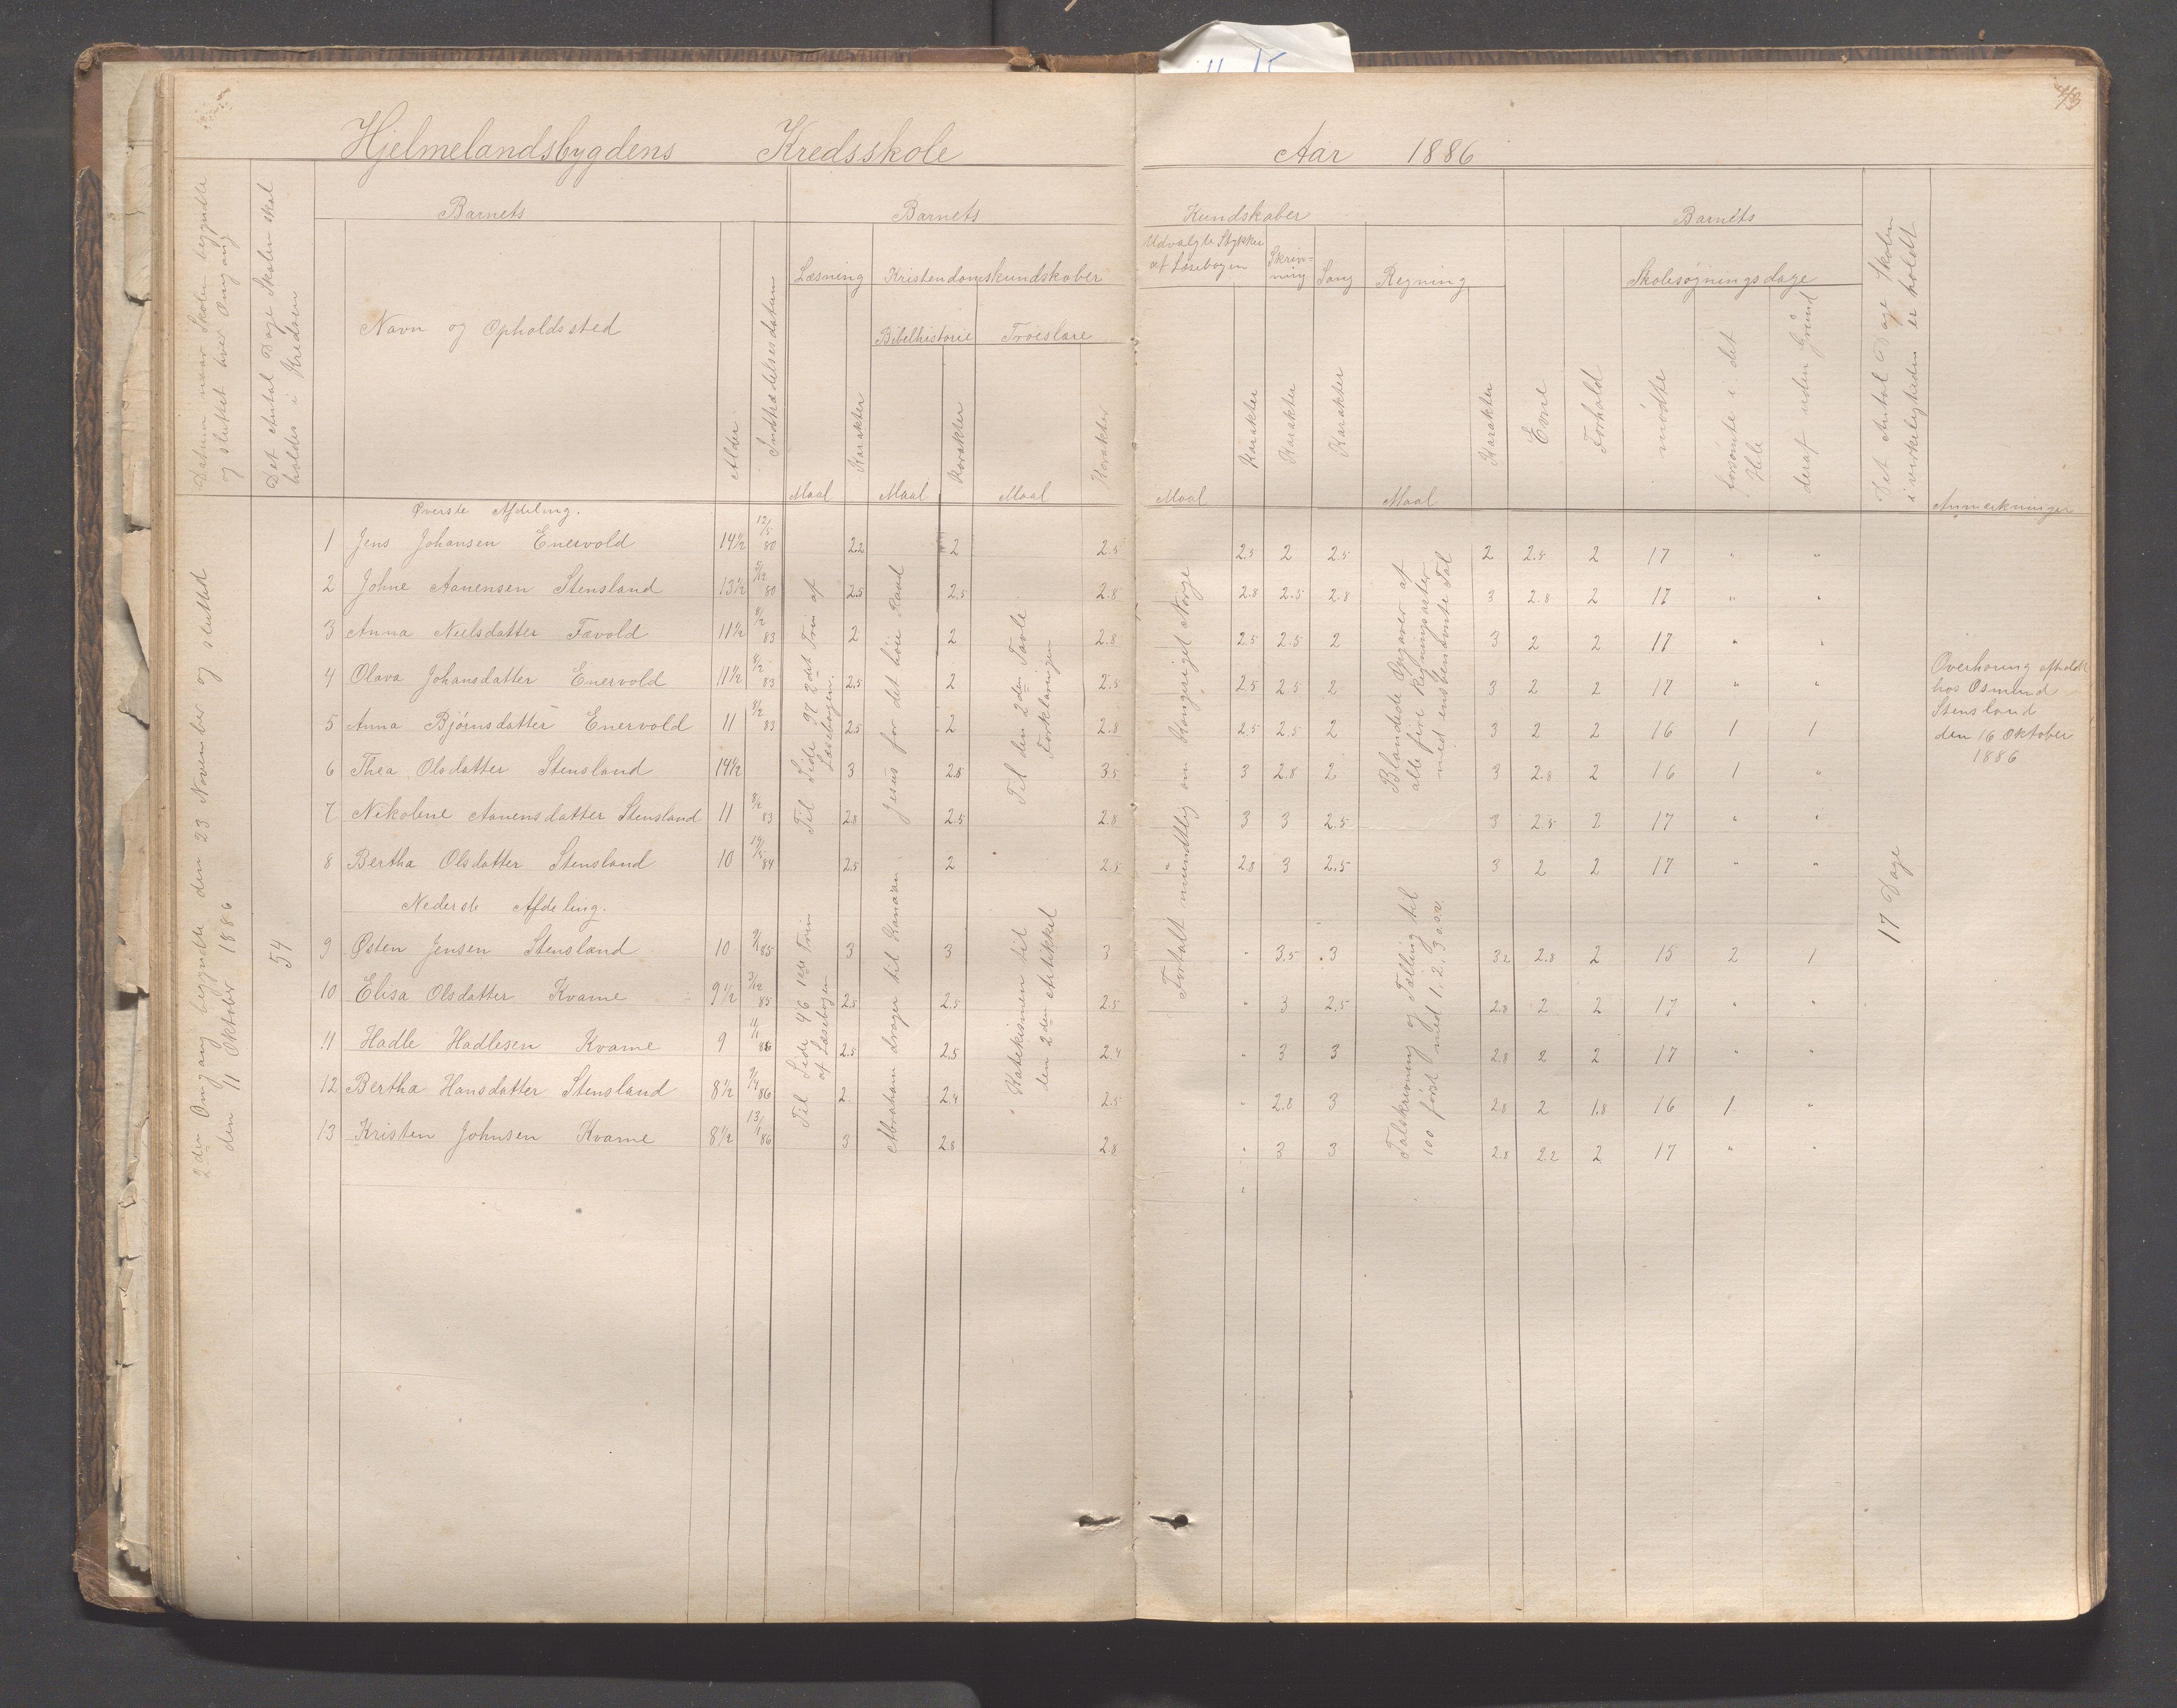 Hjelmelandsbygdens Kredsskole
Aar 1886
43
Datum naar Skolen begyndte
og sluttet hver Omgang
Det Antal Dage Skolen skal
holdes i Kredsen
Barnets
Navn og Opholdssted
Alder
Indtrædelsesdatum
Barnets
Læsning
Kristendomskundskaber
Bibelhistorie
Troeslære
Maal
Karakter
Maal
Karakter
Maal
Karakter
Kundskaber
Udvalgte Stykker
af Læsebogen
Skriv=
ning
Sang
Regning
Maal
Karakter
Karakter
Karakter
Maal
Karakter
Barnets
Evne
Forhold
Skolesøgningsdage
mødte
forsømte i det
Hele
deraf uden Grund
Det Antal Dage Skolen
i virkeligheden er holdt
Anmærkninger
2den Omgang begyndte den 23 November og slutted
den 11 Oktober 1886
54
Øverste Afdeling.
1 Jens Johansen Enervold 14½ 12/5 80 2.2 2 2.5 2.5 2 2.5 2 2.5 2 17 " "
2 Johne Aanensen Stensland 13½ 80 2.5 2.5 2.8 2.8 2.5 2.8 3 2.8 2 17 " "
3 Anna Nielsdatter Fævold 11½ 8/2 83 2 2 2.8 2.5 2.5 2 3 2 2 17 " "
4 Olava Johansdatter Enervold 11½ 8/2 83 2.5 2 2.5 2.5 2.5 2 3 2 2 17 " "
5 Anna Bjørnsdatter Enervold 11 8/2 83 2.5 2 2.8 2.5 2.5 2 3 2 2 16 1 1
6 Thea Olsdatter Stensland 14½ 3 2.8 3.5 3 2.8 2 3 2.8 2 16 1 "
7 Nikoline Aanensdatter Stensland 11 8/2 83 2.8 2.5 2.8 3 3 2.5 3 2.5 2 17 " "
8 Bertha Olsdatter Stensland 10 84 2.5 2 2.5 2.8 3 2.5 3 2 2 17 " "
Nederste Afdeling.
9 Østen Jensen Stensland 10 85 3 3 3 " 3.5 3 3.2 2.8 2 15 2 1
10 Elisa Olsdatter Kvame 9½ 3/12 85 2.5 2.5 2.5 " 3 2.5 2.8 2 2 17 " "
11 Hadle Hadlesen Kvame 9 86 2.5 2.5 2.4 " 3 3 2.8 2 2 17 " "
12 Bertha Hansdatter Stensland 8½ 86 2 2.4 2.5 " 2.8 3 2.8 2 1.8 16 1 "
13 Kristen Johnsen Kvame 8½ 13/1 86 3 2.8 2.8 " 3 3 2.8 2.2 2 17 " "
Til Side 97 2det Trin af
Læsebogen.
Jesus for det høie Raad
Til den 2den Tavle
Forklaringen
Til Side 46 1ste Trin
af Læsebogen
Abraham drager til Kanaan
Katekismen til
den 2den Artikkel
Fortalt mundtlig om Kongeriget Norge
Blandede Opgaver af
alle fire Regningsarter
med ensbenævnte Tal
Talskrivning og Tælling til
100 først med 1, 2, 3 osv.
17 Dage
Overhøring afholdt
hos Osmund
Stensland
den 16 Oktober
1886